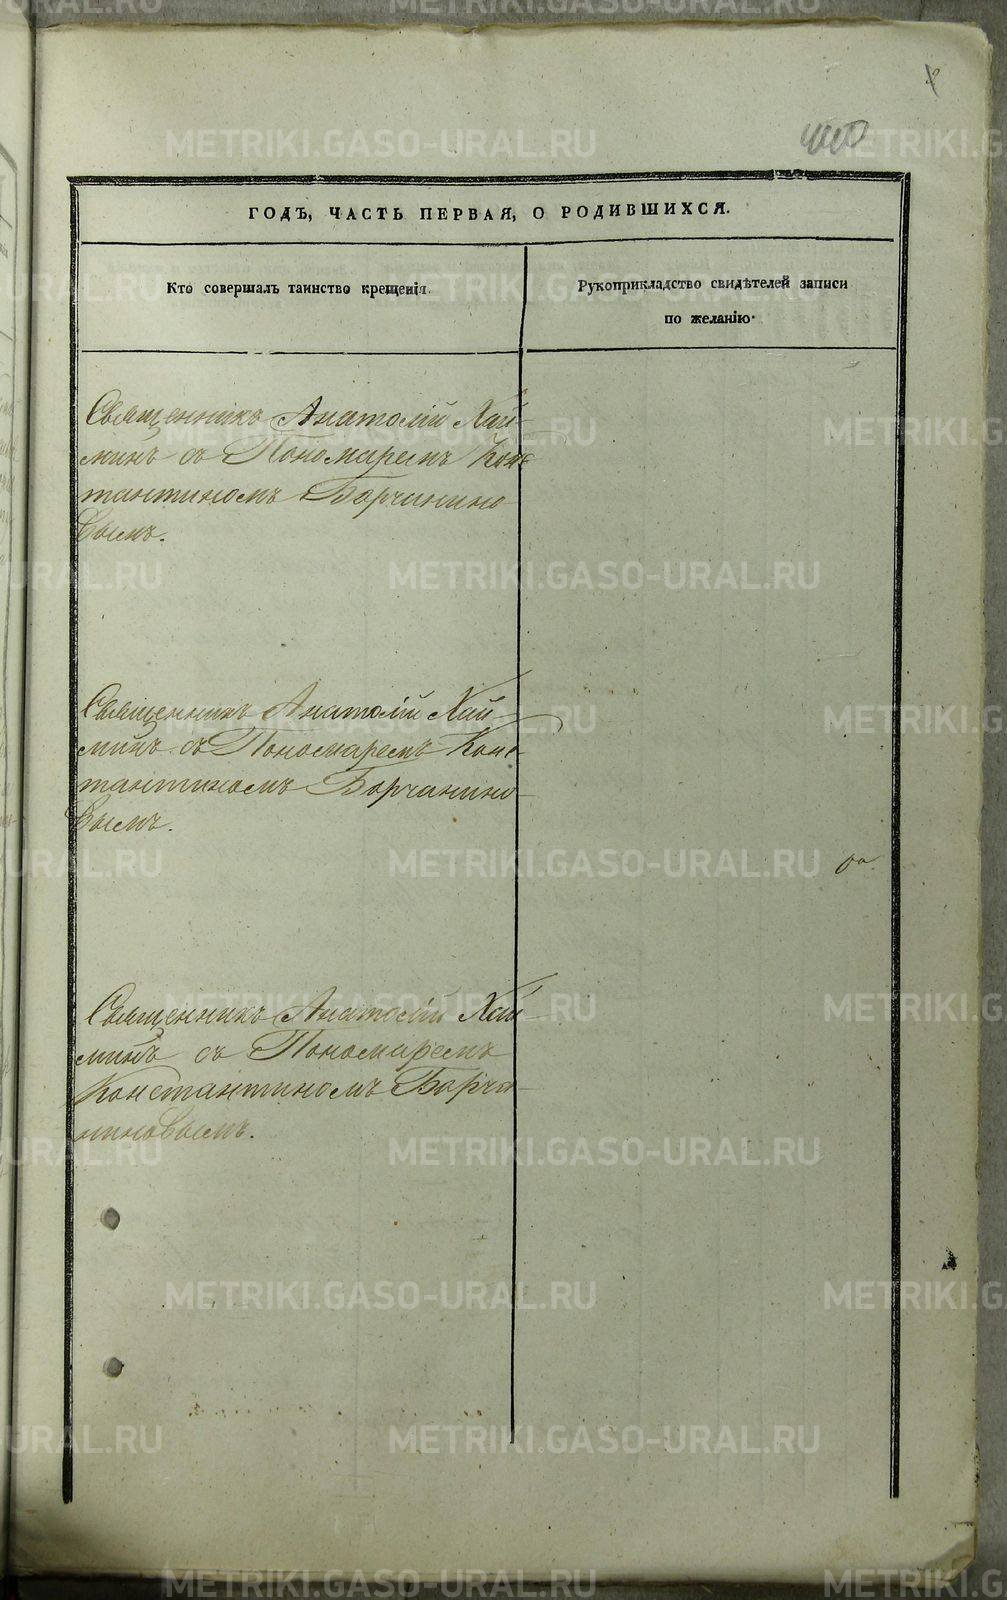 400
ГОДЪ, ЧАСТЬ ПЕРВАЯ, О РОДИВШИХСЯ.
Кто совершалъ таинство крещенія.
Рукоприкладство свидѣтелей записи
по желанію.
Священникъ Анатолій Хай-
минъ съ Пономаремъ Конс
тантиномъ Борчанино
вымъ.
Священникъ Анатолій Хай-
минъ съ Пономаремъ Конс
тантиномъ Борчанино-
вымъ.
Священникъ Анатолій Хай-
минъ съ Пономаремъ
Константиномъ Борча-
ниновымъ.
METRIKI.GASO-URAL.RU